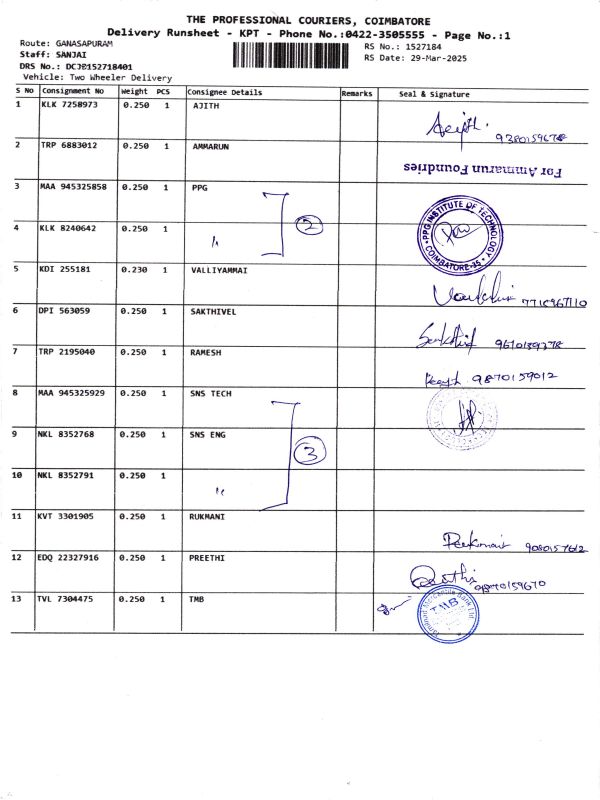 THE PROFESSIONAL COURIERS, COIMBATORE
Delivery Runsheet - KPT - Phone No.:0422-3505555 - Page No.:1
Route: GANASAPURAM
RS No.: 1527184
Staff: SANJAI
RS Date: 29-Mar-2025
DRS No.: DCJB152718401
Vehicle: Two Wheeler Delivery
S No Consignment No Weight PCS Consignee Details Remarks Seal & Signature
1 KLK 7258973 0.250 1 AJITH
2 TRP 6883012 0.250 1 AMMARUN
For Ammarun Foundries
3 MAA 945325858 0.250 1 PPG
2
PPG INSTITUTE OF TECHNOLOGY
COIMBATORE-35
4 KLK 8240642 0.250 1 "
5 KDI 255181 0.230 1 VALLIYAMMAI
6 DPI 563059 0.250 1 SAKTHIVEL
7 TRP 2195040 0.250 1 RAMESH
9870159012
8 MAA 945325929 0.250 1 SNS TECH
9 NKL 8352768 0.250 1 SNS ENG
3
10 NKL 8352791 0.250 1 "
11 KVT 3301905 0.250 1 RUKMANI
12 EDQ 22327916 0.250 1 PREETHI
13 TVL 7304475 0.250 1 TMB
Tamilnad Mercantile Bank Ltd
TMB